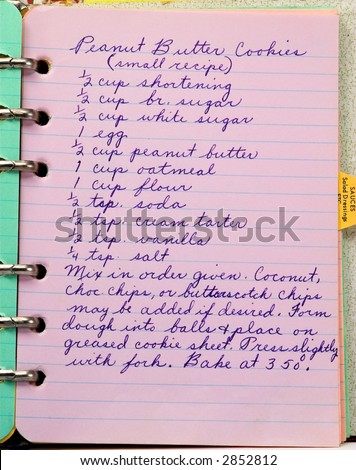 Peanut Butter Cookies
(small recipe)
½ cup shortening
½ cup br. sugar
½ cup white sugar
1 egg
½ cup peanut butter
1 cup oatmeal
1 cup flour
½ tsp. soda
½ tsp. cream tarter
½ tsp. vanilla
¼ tsp. salt
Mix in order given. Coconut,
choc chips, or butterscotch chips
may be added if desired. Form
dough into balls & place on
greased cookie sheet. Press slightly
with fork. Bake at 350°.
SAUCES
Salad Dressings
ETC.
shutterstock
www.shutterstock.com · 2852812